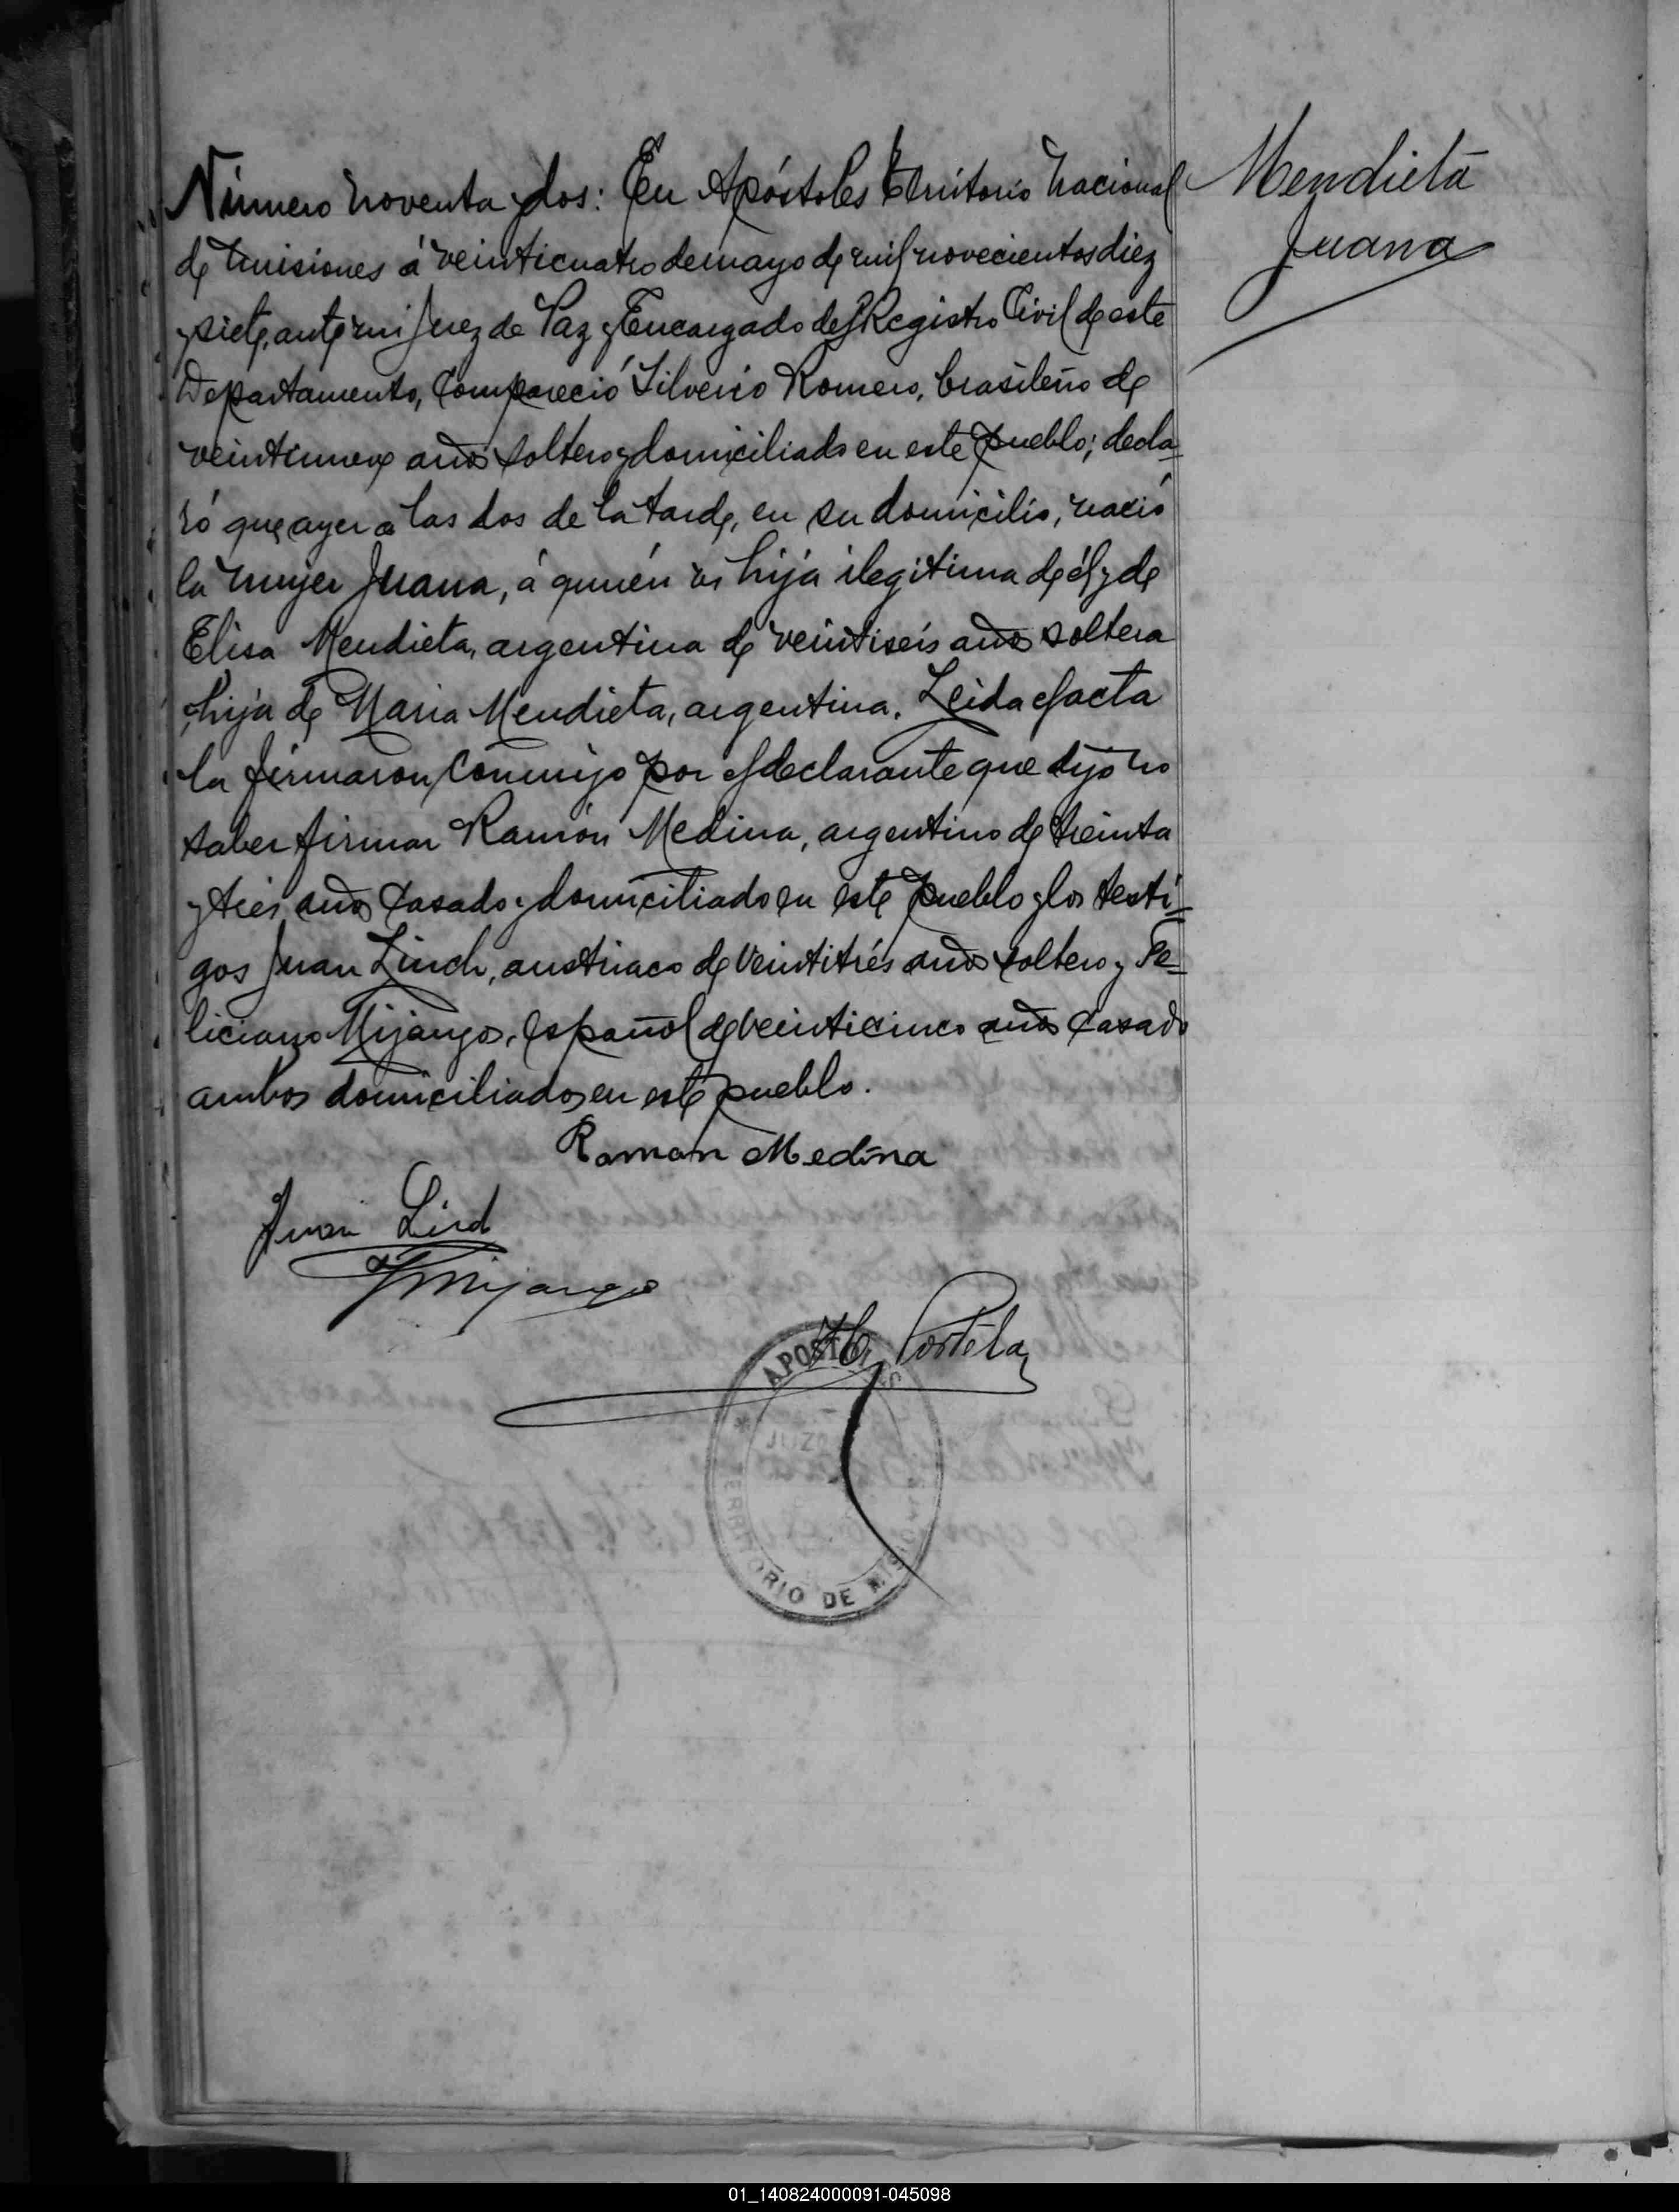 Número noventa y dos: En Apóstoles territorio nacional
de misiones á veinticuatro de mayo de mil novecientos diez
y siete, ante mi Juez de Paz y Encargado del Registro Civil de este
Departamento, Compareció Silverio Romero, brasileño de
veintinueve años soltero y domiciliado en este pueblo; decla-
ró que ayer a las dos de la tarde, en su domicilio, nació
la mujer Juana, á quién es hija ilegitima de él y de
Elisa Mendieta, argentina de veintiseis años soltera
hija de Maria Mendieta, argentina. Leida el acta
la firmaron conmigo por el declarante que dijo no
saber firmar Ramón Medina, argentino de treinta
y tres años casado y domiciliado en este pueblo y los testi-
gos Juan Linch, austriaco de veintitrés años soltero y Fe-
liciano Mijango, español de veinticinco años casado
ambos domiciliados en este pueblo.
Ramon Medina
Juan Lind
F Mijango
Portela
APOSTOLES
JUZ
TERRITORIO DE MISIONES
Mendieta
Juana
01_140824000091-045098